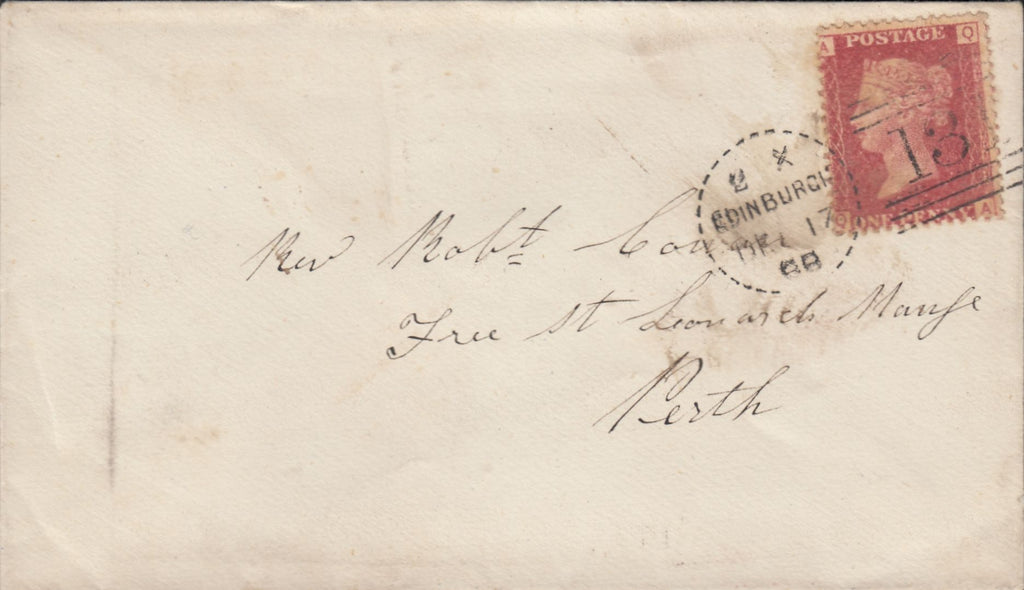 A POSTAGE Q
13
Q ONE PENNY A
EDINBURGH
17
68
Rev Robt
Free St Leonards Manse
Perth